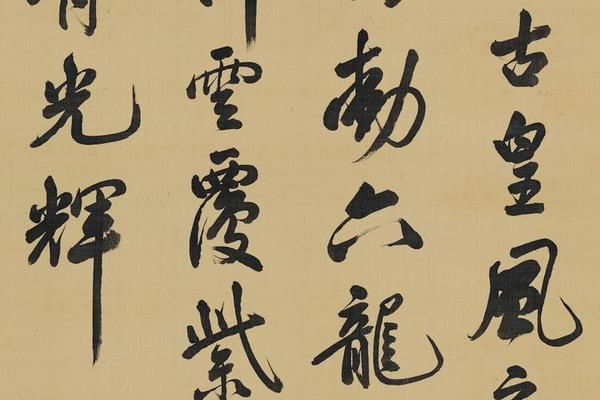 古皇風
勒六龍
雲覆紫
光輝